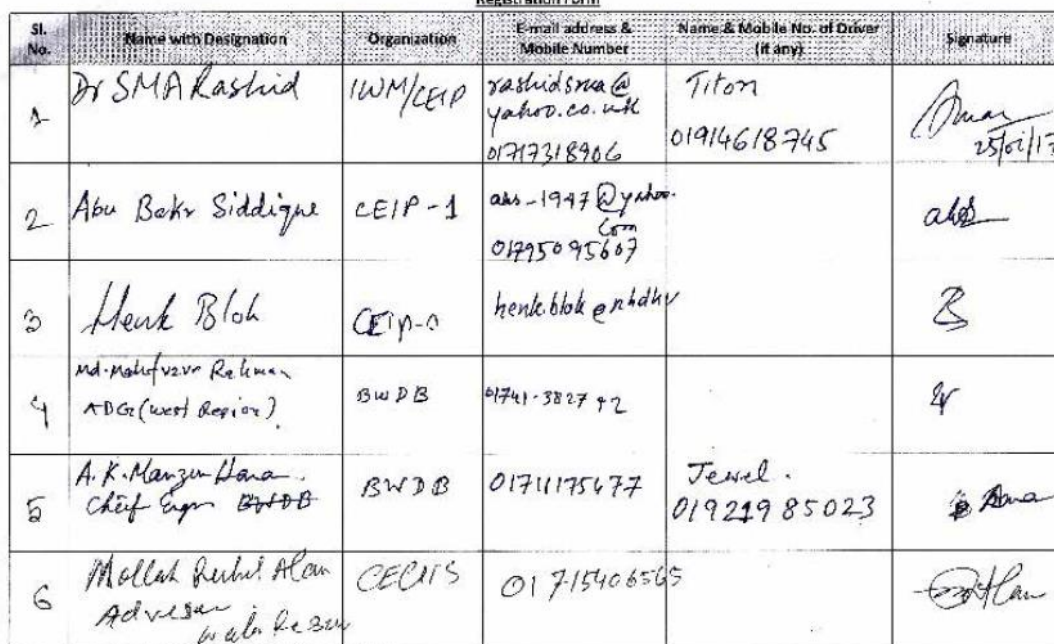 Registration Form
Sl. No. Name with Designation Organization E-mail address & Mobile Number Name & Mobile No. of Driver (if any) Signature
1 Dr SMA Rashid IWM/CEIP rashidsma@
yahoo.co.uk
01717318906 Titon
01914618745
2 Abu Bakr Siddique CEIP-1 abs-1947@yahoo.
com
01795095607
3 Henk Blok CEIP-1 henk.blok@rhdhv
4 Rahman
ADG (West Region) BWDB 01741-382742
5 A.K. Manzur
Chief Engr BWDB BWDB 01711175477 Jewel.
01921985023
6 Mollah Ruhul Alam
Adviser CEGIS 01715406565